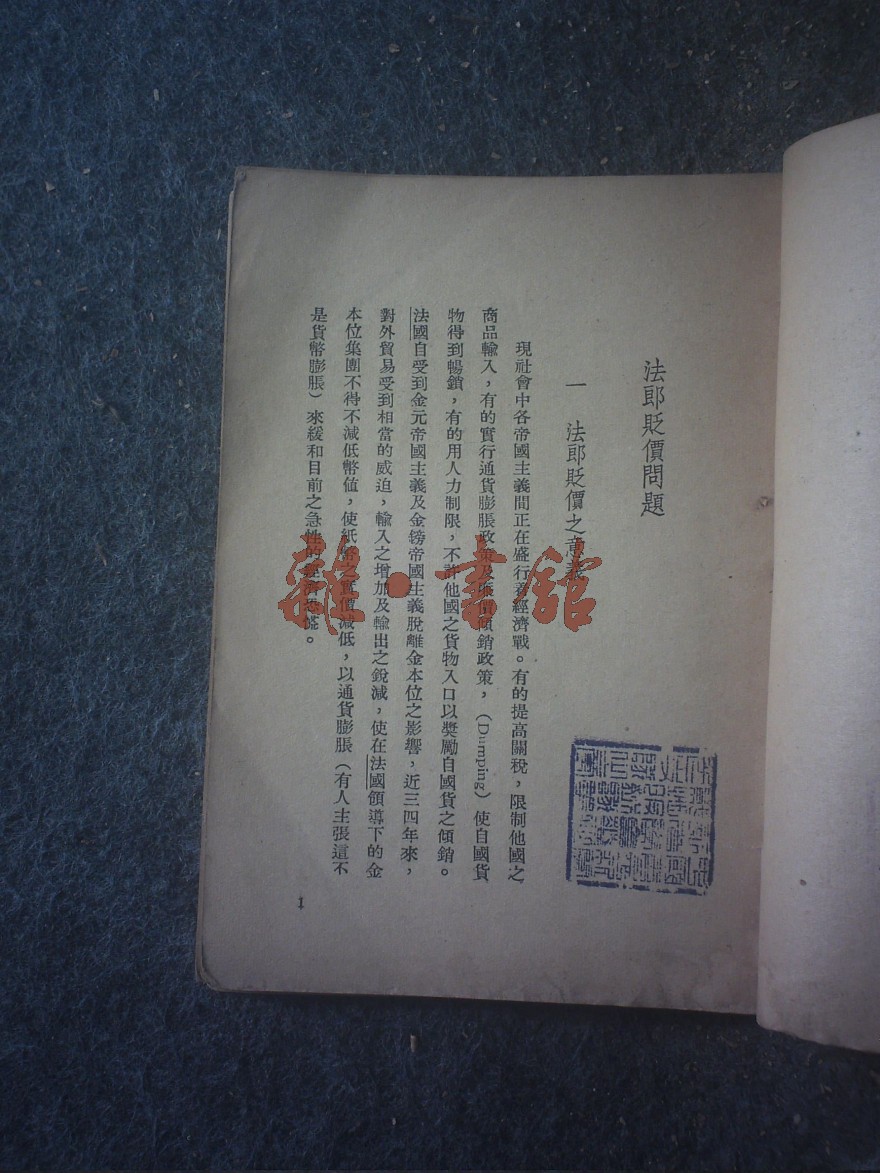 法郎貶價問題
一　法郎貶價之意義
現社會中各帝國主義間正在盛行着經濟戰。有的提高關稅，限制他國之
商品輸入，有的實行通貨膨脹政策及賬價傾銷政策，（Dumping）使自國貨
物得到暢銷，有的用人力制限，不許他國之貨物入口以獎勵自國貨之傾銷。
法國自受到金元帝國主義及金鎊帝國主義脫離金本位之影響，近三四年來，
對外貿易受到相當的威迫，輸入之增加及輸出之銳減，使在法國領導下的金
本位集團不得不減低幣值，使紙幣之實價減低，以通貨膨脹（有人主張這不
是貨幣膨脹）來緩和目前之急性的經濟恐慌。
1
雜·書館